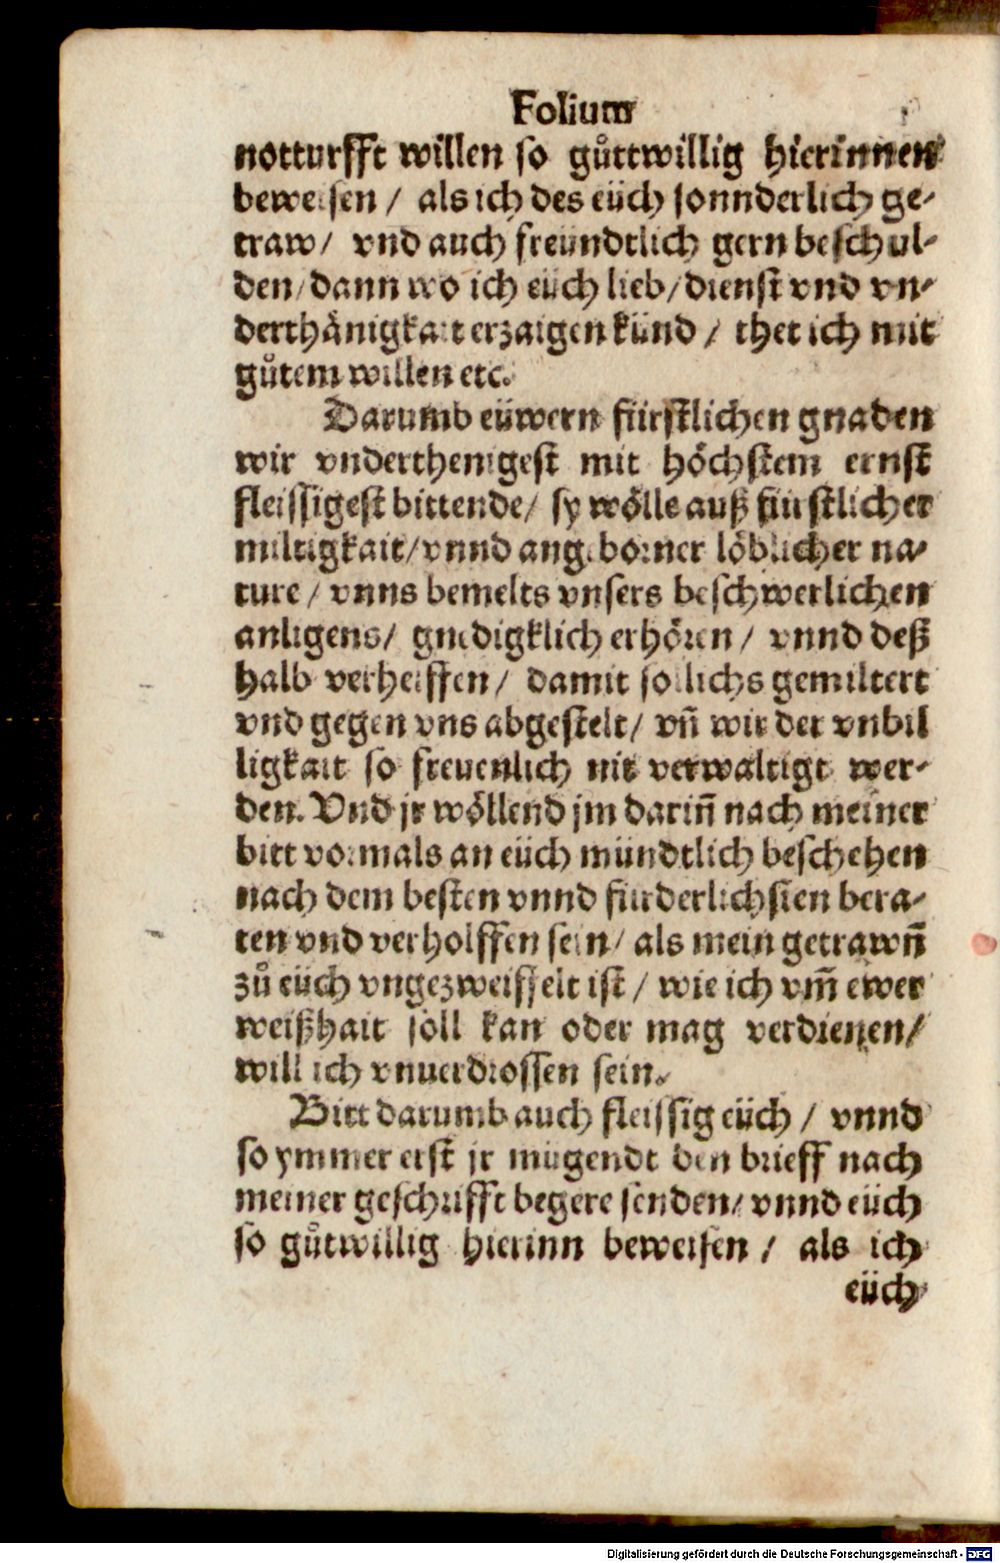 Folium
notturfft willen so gůttwillig hierinnen
beweisen / als ich des eüch sonnderlich ge-
traw / vnd auch freündtlich gern beschul-
den / dann wo ich eüch lieb / dienst vnd vn-
derthänigkait erzaigen künd / thet ich mit
gůtem willen etc.
Darumb eüwern fürstlichen gnaden
wir vnderthenigest mit höchstem ernst
fleissigest bittende / sy wölle auß fürstlicher
miltigkait / vnnd angeborner löblicher na-
ture / vnns bemelts vnsers beschwerlichen
anligens / gnedigklich erhören / vnnd deß
halb verhelffen / damit sollichs gemiltert
vnd gegen vns abgestelt / vn̄ wir der vnbil
ligkait so freuenlich nit verwaltigt wer-
den. Vnd jr wöllend jm darin̄ nach meiner
bitt vormals an eüch mündtlich beschehen
nach dem besten vnnd fürderlichsten bera-
ten vnd verholffen sein / als mein getrawn̄
zů eüch vngezweiffelt ist / wie ich vm̄ ewer
weißhait soll kan oder mag verdienen /
will ich vnuerdrossen sein.
Bitt darumb auch fleissig eüch / vnnd
so ymmer erst jr mügendt den brieff nach
meiner geschrifft begere senden / vnnd eüch
so gůtwillig hierinn beweisen / als ich
eüch
Digitalisierung gefördert durch die Deutsche Forschungsgemeinschaft - DFG